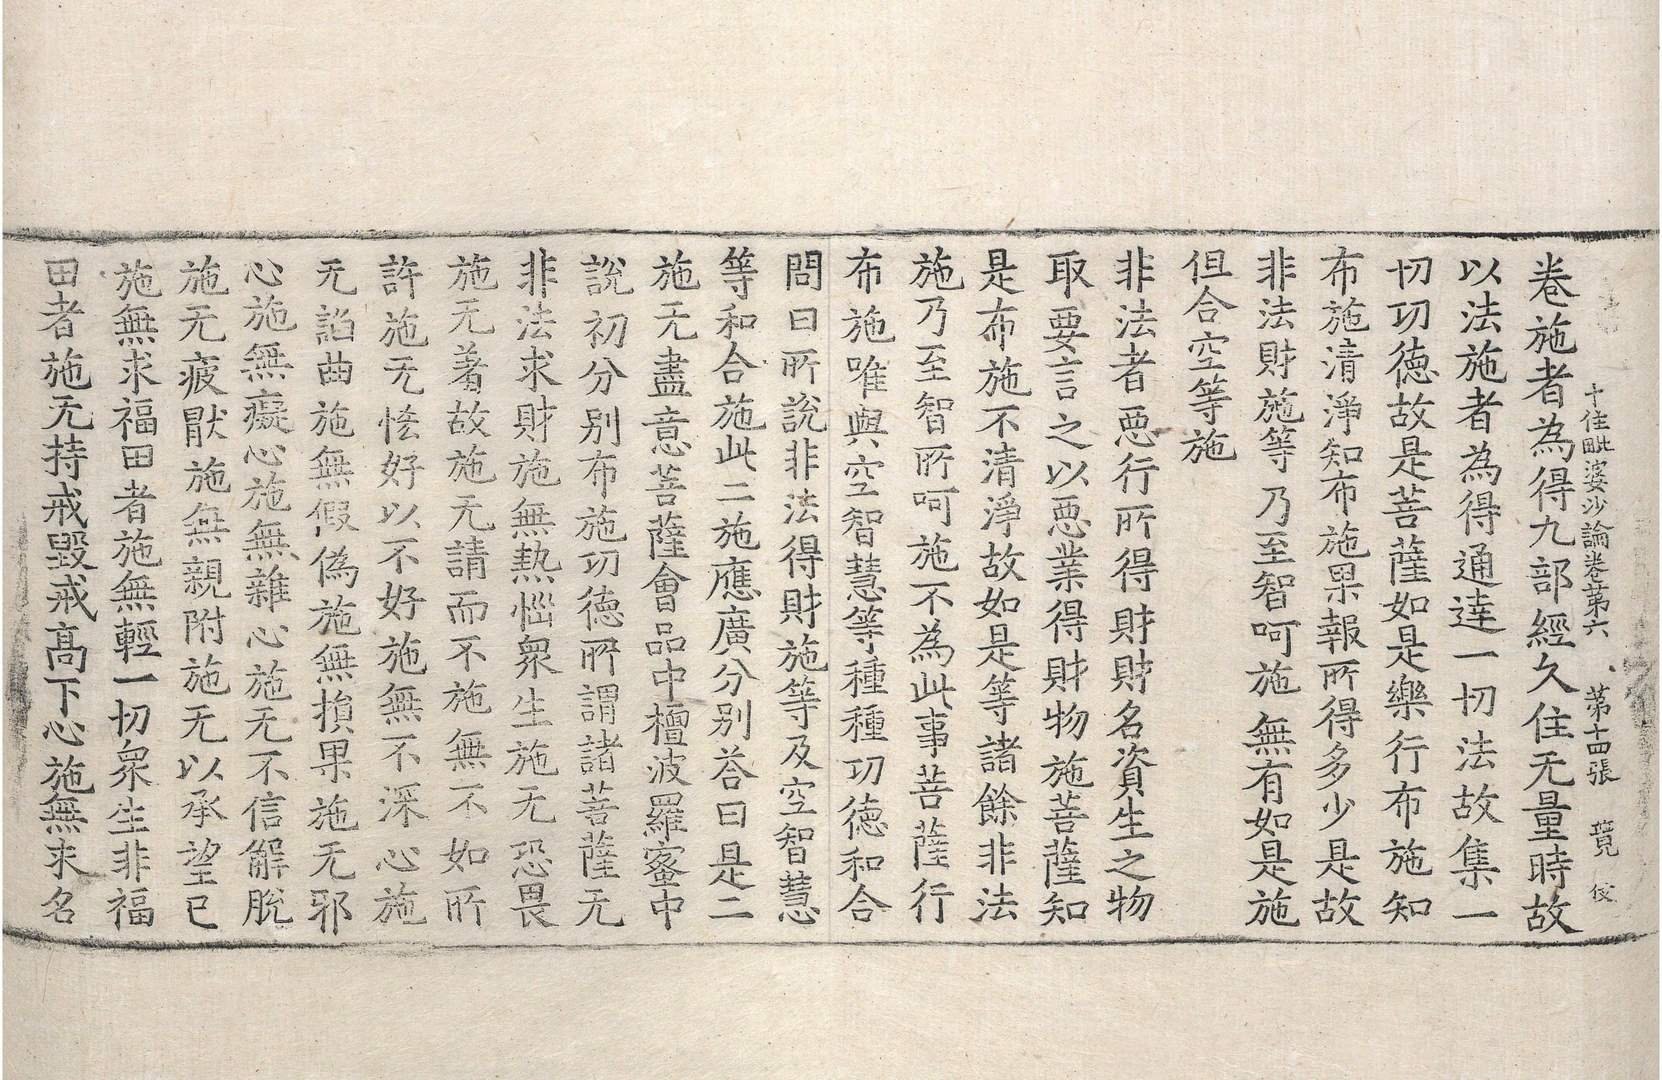 十住毗婆沙論卷第六 第十四張 覽
卷施者為得九部經久住无量時故
以法施者為得通達一切法故集一
切功德故是菩薩如是樂行布施知
布施清淨知布施果報所得多少是故
非法財施等乃至智呵施無有如是施
但合空等施
非法者惡行所得財財名資生之物
取要言之以惡業得財物施菩薩知
是布施不清淨故如是等諸餘非法
施乃至智所呵施不為此事菩薩行
布施唯與空智慧等種種功德和合
問曰所說非法得財施等及空智慧
等和合施此二施應廣分別荅曰是二
施无盡意菩薩會品中檀波羅蜜中
說初分別布施功德所謂諸菩薩无
非法求財施無熱惱衆生施无恐畏
施无著故施无請而不施無不如所
許施无恡好以不好施無不深心施
无諂曲施無假偽施無損果施无邪
心施無癡心施無雜心施无不信解脫
施无疲猒施無親附施无以承望已
施無求福田者施無輕一切衆生非福
田者施无持戒毀戒高下心施無求名